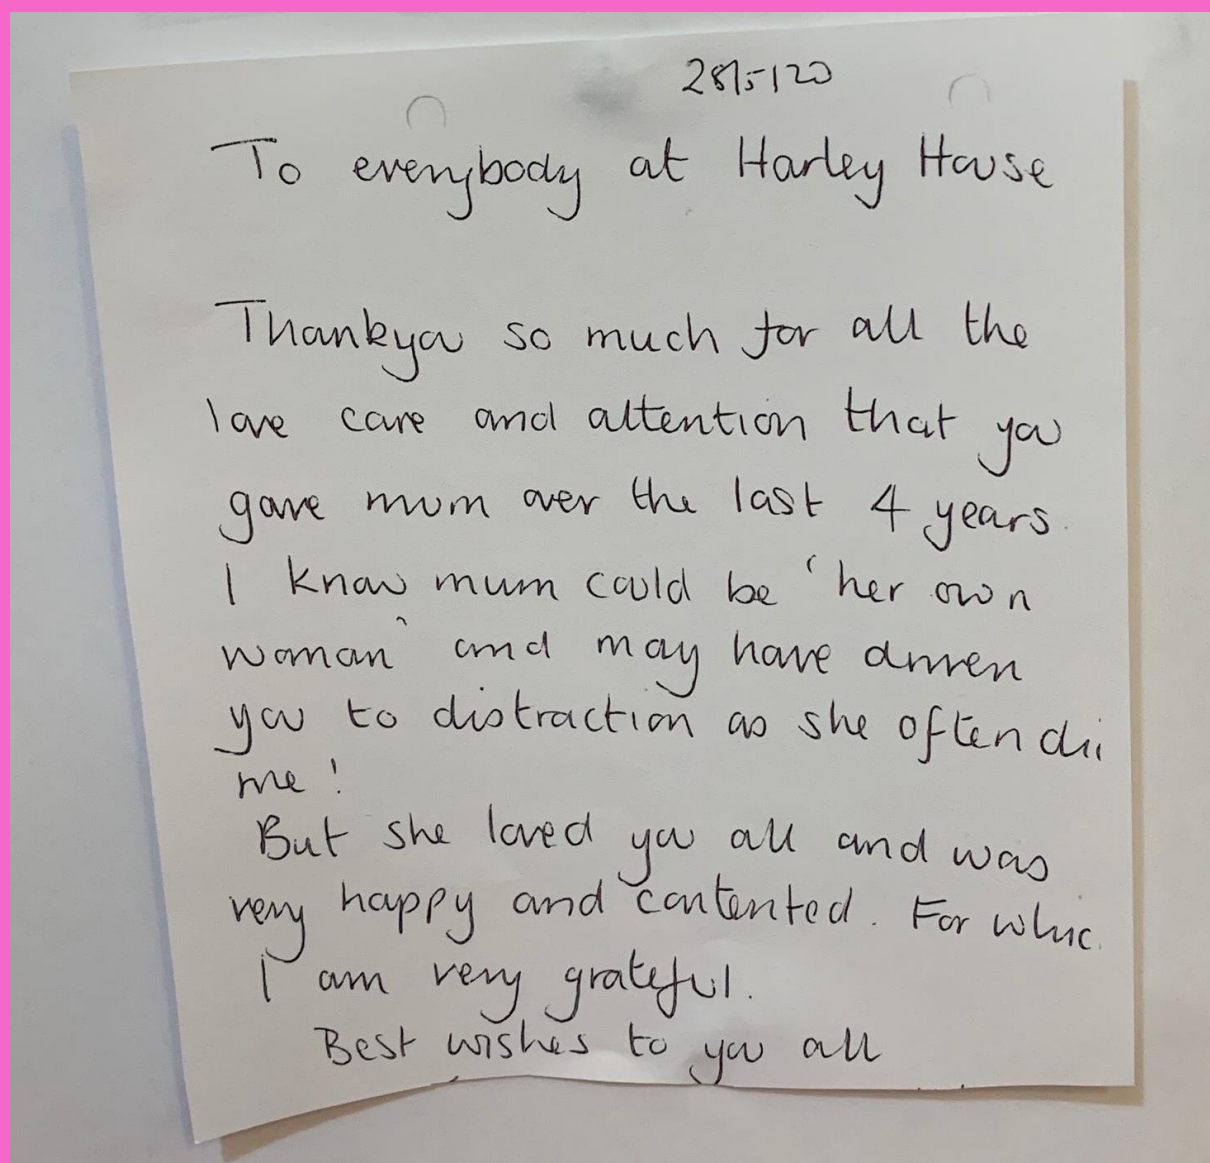 28/5/20
To everybody at Harley House
Thankyou so much for all the
love care and attention that you
gave mum over the last 4 years.
I know mum could be 'her own
woman' and may have driven
you to distraction as she often di
me!
But she loved you all and was
very happy and contented. For whic
I am very grateful.
Best wishes to you all